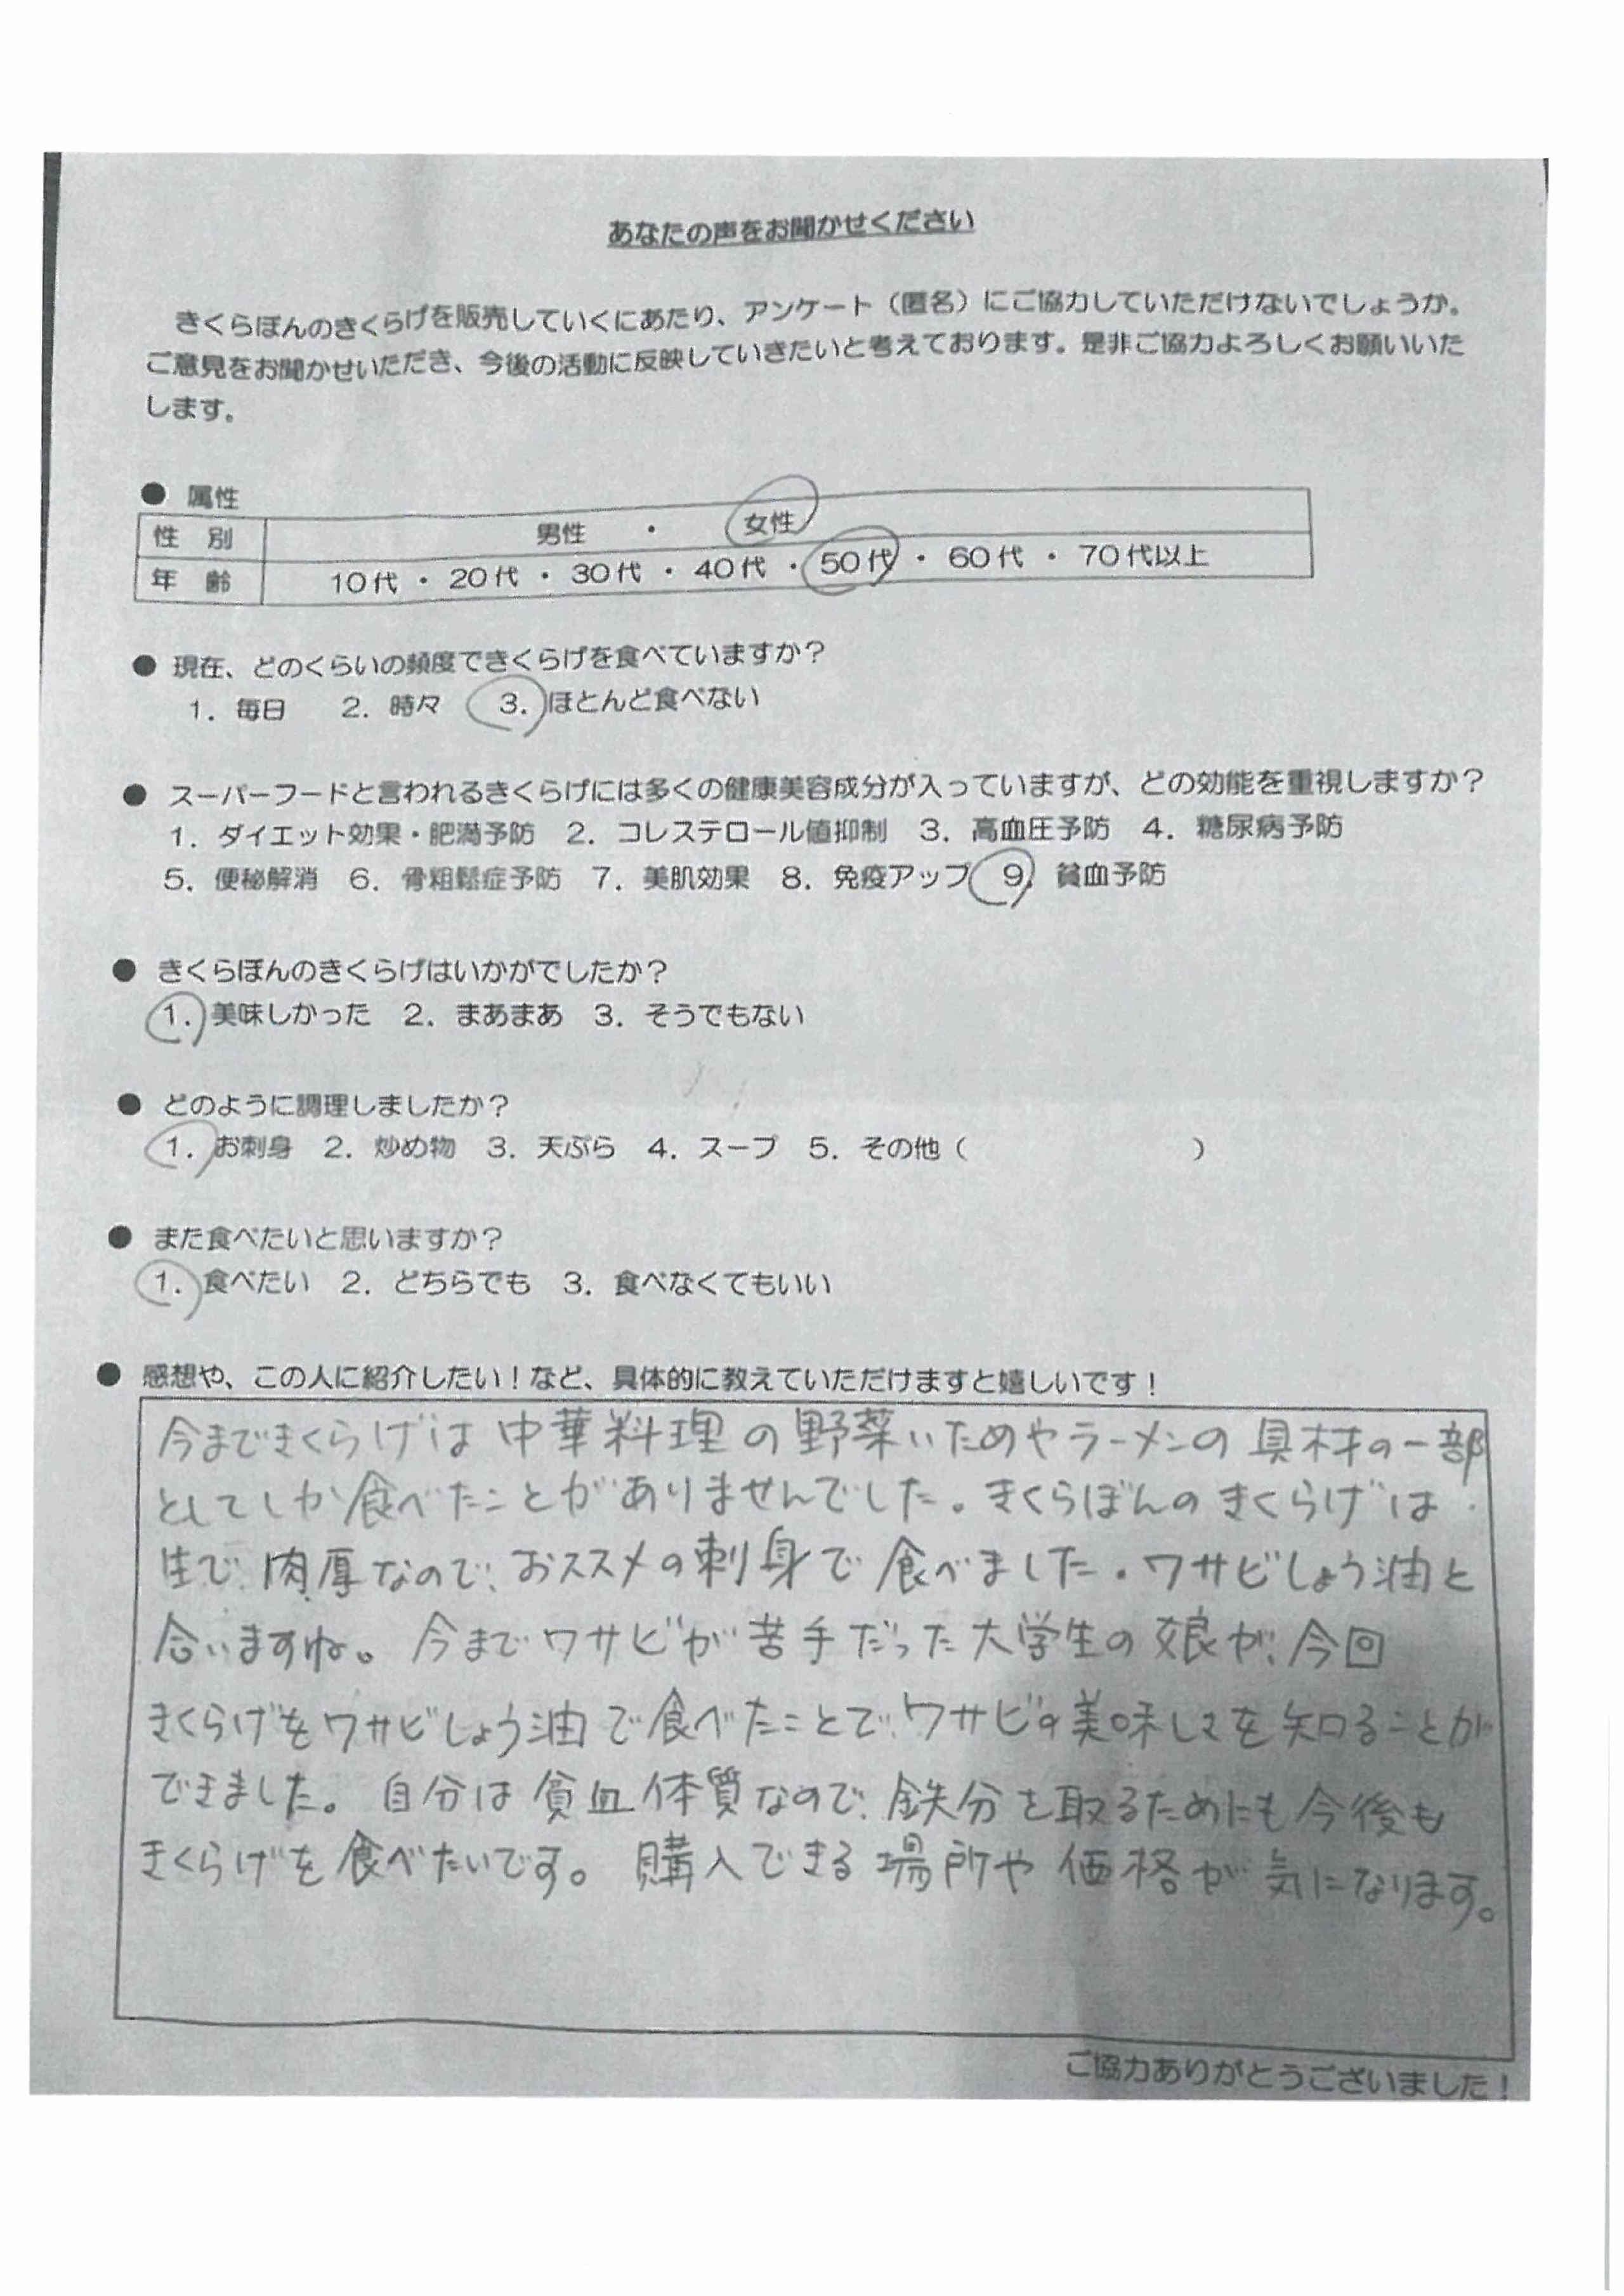 あなたの声をお聞かせください
きくらぼんのきくらげを販売していくにあたり、アンケート（匿名）にご協力していただけないでしょうか。
ご意見をお聞かせいただき、今後の活動に反映していきたいと考えております。是非ご協力よろしくお願いいた
します。
● 属性
性 別 男性 ・ 女性
年 齢 10代 ・ 20代 ・ 30代 ・ 40代 ・ 50代 ・ 60代 ・ 70代以上
● 現在、どのくらいの頻度できくらげを食べていますか？
1. 毎日 2. 時々 3. ほとんど食べない
● スーパーフードと言われるきくらげには多くの健康美容成分が入っていますが、どの効能を重視しますか？
1. ダイエット効果・肥満予防 2. コレステロール値抑制 3. 高血圧予防 4. 糖尿病予防
5. 便秘解消 6. 骨粗鬆症予防 7. 美肌効果 8. 免疫アップ 9. 貧血予防
● きくらぼんのきくらげはいかがでしたか？
1. 美味しかった 2. まあまあ 3. そうでもない
● どのように調理しましたか？
1. お刺身 2. 炒め物 3. 天ぷら 4. スープ 5. その他（ ）
● また食べたいと思いますか？
1. 食べたい 2. どちらでも 3. 食べなくてもいい
● 感想や、この人に紹介したい！など、具体的に教えていただけますと嬉しいです！
今まできくらげは中華料理の野菜いためやラーメンの具材の一部
としてしか食べたことがありませんでした。きくらぼんのきくらげは
生で、肉厚なので、おススメの刺身で食べました。ワサビしょう油と
合いますね。今までワサビが苦手だった大学生の娘が、今回
きくらげをワサビしょう油で食べたことで、ワサビの美味しさを知ることが
できました。自分は貧血体質なので、鉄分を取るためにも今後も
きくらげを食べたいです。購入できる場所や価格が気になります。
ご協力ありがとうございました！